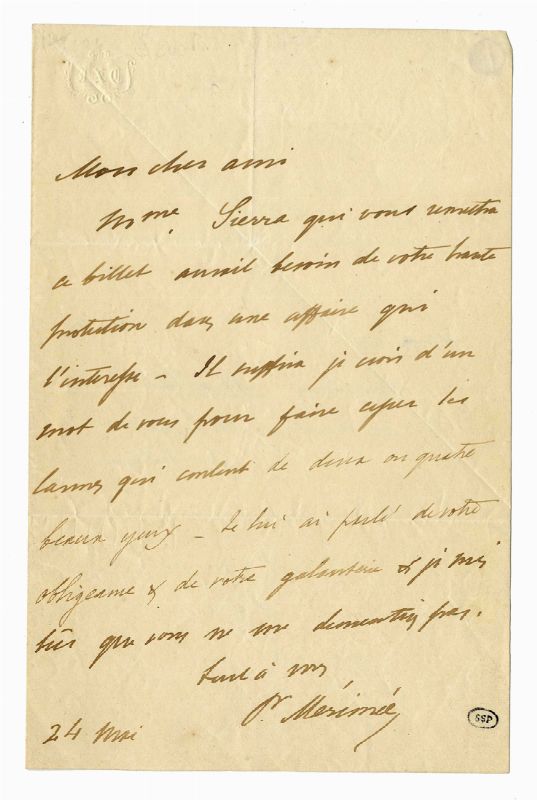 Mon cher ami
Mme. Sierra qui vous remettra
ce billet aurait besoin de votre haute
protection dans une affaire qui
l'interesse - Il suffira je crois d'un
mot de vous pour faire cesser les
larmes qui coulent de deux ou quatre
beaux yeux - Je lui ai parlé de votre
obligeance & de votre galanterie & je suis
sûr que vous ne me dementirez pas.
tout à vous
Pr Mérimée
24 Mai
SSP